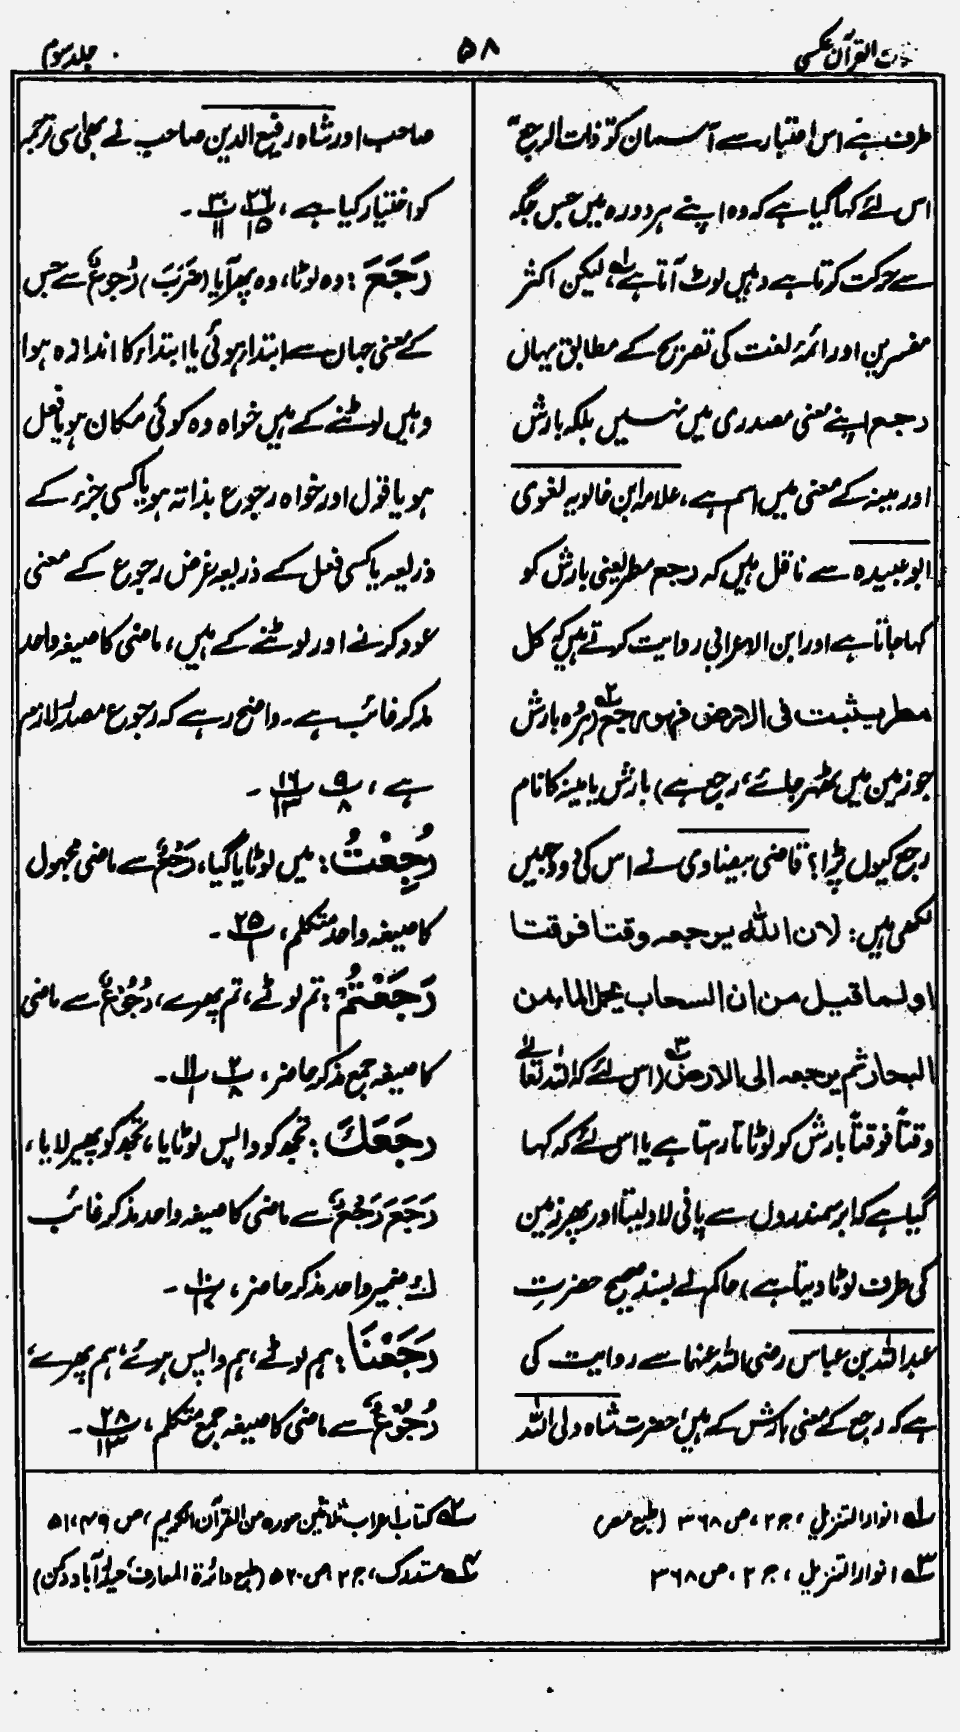 لغات القرآن عکسی
۵۸
جلد سوم
طرف ہے اس اعتبار سے آسمان کو "ذات الرجع"
اس لئے کہا گیا ہے کہ وہ اپنے ہر دورہ میں جس جگہ
سے حرکت کرتا ہے وہیں لوٹ آتا ہے لہ، لیکن اکثر
مفسرین اور ائمۂ لغت کی تصریح کے مطابق یہاں
رجع اپنے معنی مصدری میں نہیں بلکہ بارش
اور مینہ کے معنی میں اسم ہے، علامہ ابن خالویہ لغوی
ابو عبیدہ سے ناقل ہیں کہ رجع مطر یعنی بارش کو
کہا جاتا ہے اور ابن الاعرابی روایت کرتے ہیں کہ کل
مطر یثبت فی الارض فہو رجع ۲ (ہر وہ بارش
جو زمین میں ٹھہر جائے، رجع ہے) بارش یا مینہ کا نام
رجع کیوں پڑا؟ قاضی بیضاوی نے اس کی دو وجہیں
لکھی ہیں: لان اللہ یرجعہ وقتا فوقتا
او لما قیل من ان السحاب یحمل الماء من
البحار ثم یرجعہ الی الارض ۳ (اس لئے کہ اللہ تعالٰے
وقتاً فوقتاً بارش کو لوٹاتا رہتا ہے یا اس لئے کہ کہا
گیا ہے کہ ابر سمندروں سے پانی لاد لیتا اور پھر زمین
کی طرف لوٹا دیتا ہے) حاکم نے بسند صحیح حضرتِ
عبداللہ بن عباس رضی اللہ عنہما سے روایت کی
ہے کہ رجع کے معنی بارش کے ہیں، حضرت شاہ ولی اللہ
صاحب اور شاہ رفیع الدین صاحب نے بھی اسی ترجمہ
کو اختیار کیا ہے، ۲۶/۱۵ ۳۰/۱۱ ۔
رَجَعَ: وہ لوٹا، وہ پھر آیا (ضَرَبَ) رُجُوعٌ سے جس
کے معنی جہاں سے ابتدا ہوئی یا ابتدا کا اندازہ ہوا
وہیں لوٹنے کے ہیں خواہ وہ کوئی مکان ہو یا فعل
ہو یا قول اور خواہ رجوع بذاتہ ہو یا کسی جزء کے
ذریعہ یا کسی فعل کے ذریعہ غرض رجوع کے معنی
عود کرنے اور لوٹنے کے ہیں، ماضی کا صیغہ واحد
مذکر غائب ہے۔ واضح رہے کہ رجوع مصدر لازم
ہے، ۹/۸ ۱۶/۱۳ ۔
رُجِعْتُ: میں لوٹایا گیا، رَجْعٌ سے ماضی مجہول
کا صیغہ واحد متکلم، ۲۵/۱ ۔
رَجَعْتُمْ: تم لوٹے، تم پھرے، رُجُوْعٌ سے ماضی
کا صیغہ جمع مذکر حاضر، ۲/۸ ۱۱/۱ ۔
رَجَعَكَ: تجھ کو واپس لوٹایا، تجھ کو پھیر لایا،
رَجَعَ رَجْعٌ سے ماضی کا صیغہ واحد مذکر غائب
كَ ضمیر واحد مذکر حاضر، ۱۰/۱۷ ۔
رَجَعْنَا: ہم لوٹے، ہم واپس ہوئے، ہم پھرے،
رُجُوْعٌ سے ماضی کا صیغہ جمع متکلم، ۲۸/۱۳ ۔
۱ہ انوار التنزیل، ج۲، ص ۳۶۸ (طبع مصر)
۲ہ کتاب اعراب ثلاثین سورہ من القرآن الکریم، ص ۴۹، ۵۱
۳ہ انوار التنزیل، ج۲، ص ۳۶۸
۴ہ مستدرک، ج۲ ص ۵۲۰ (طبع دائرۃ المعارف، حیدرآباد دکن)